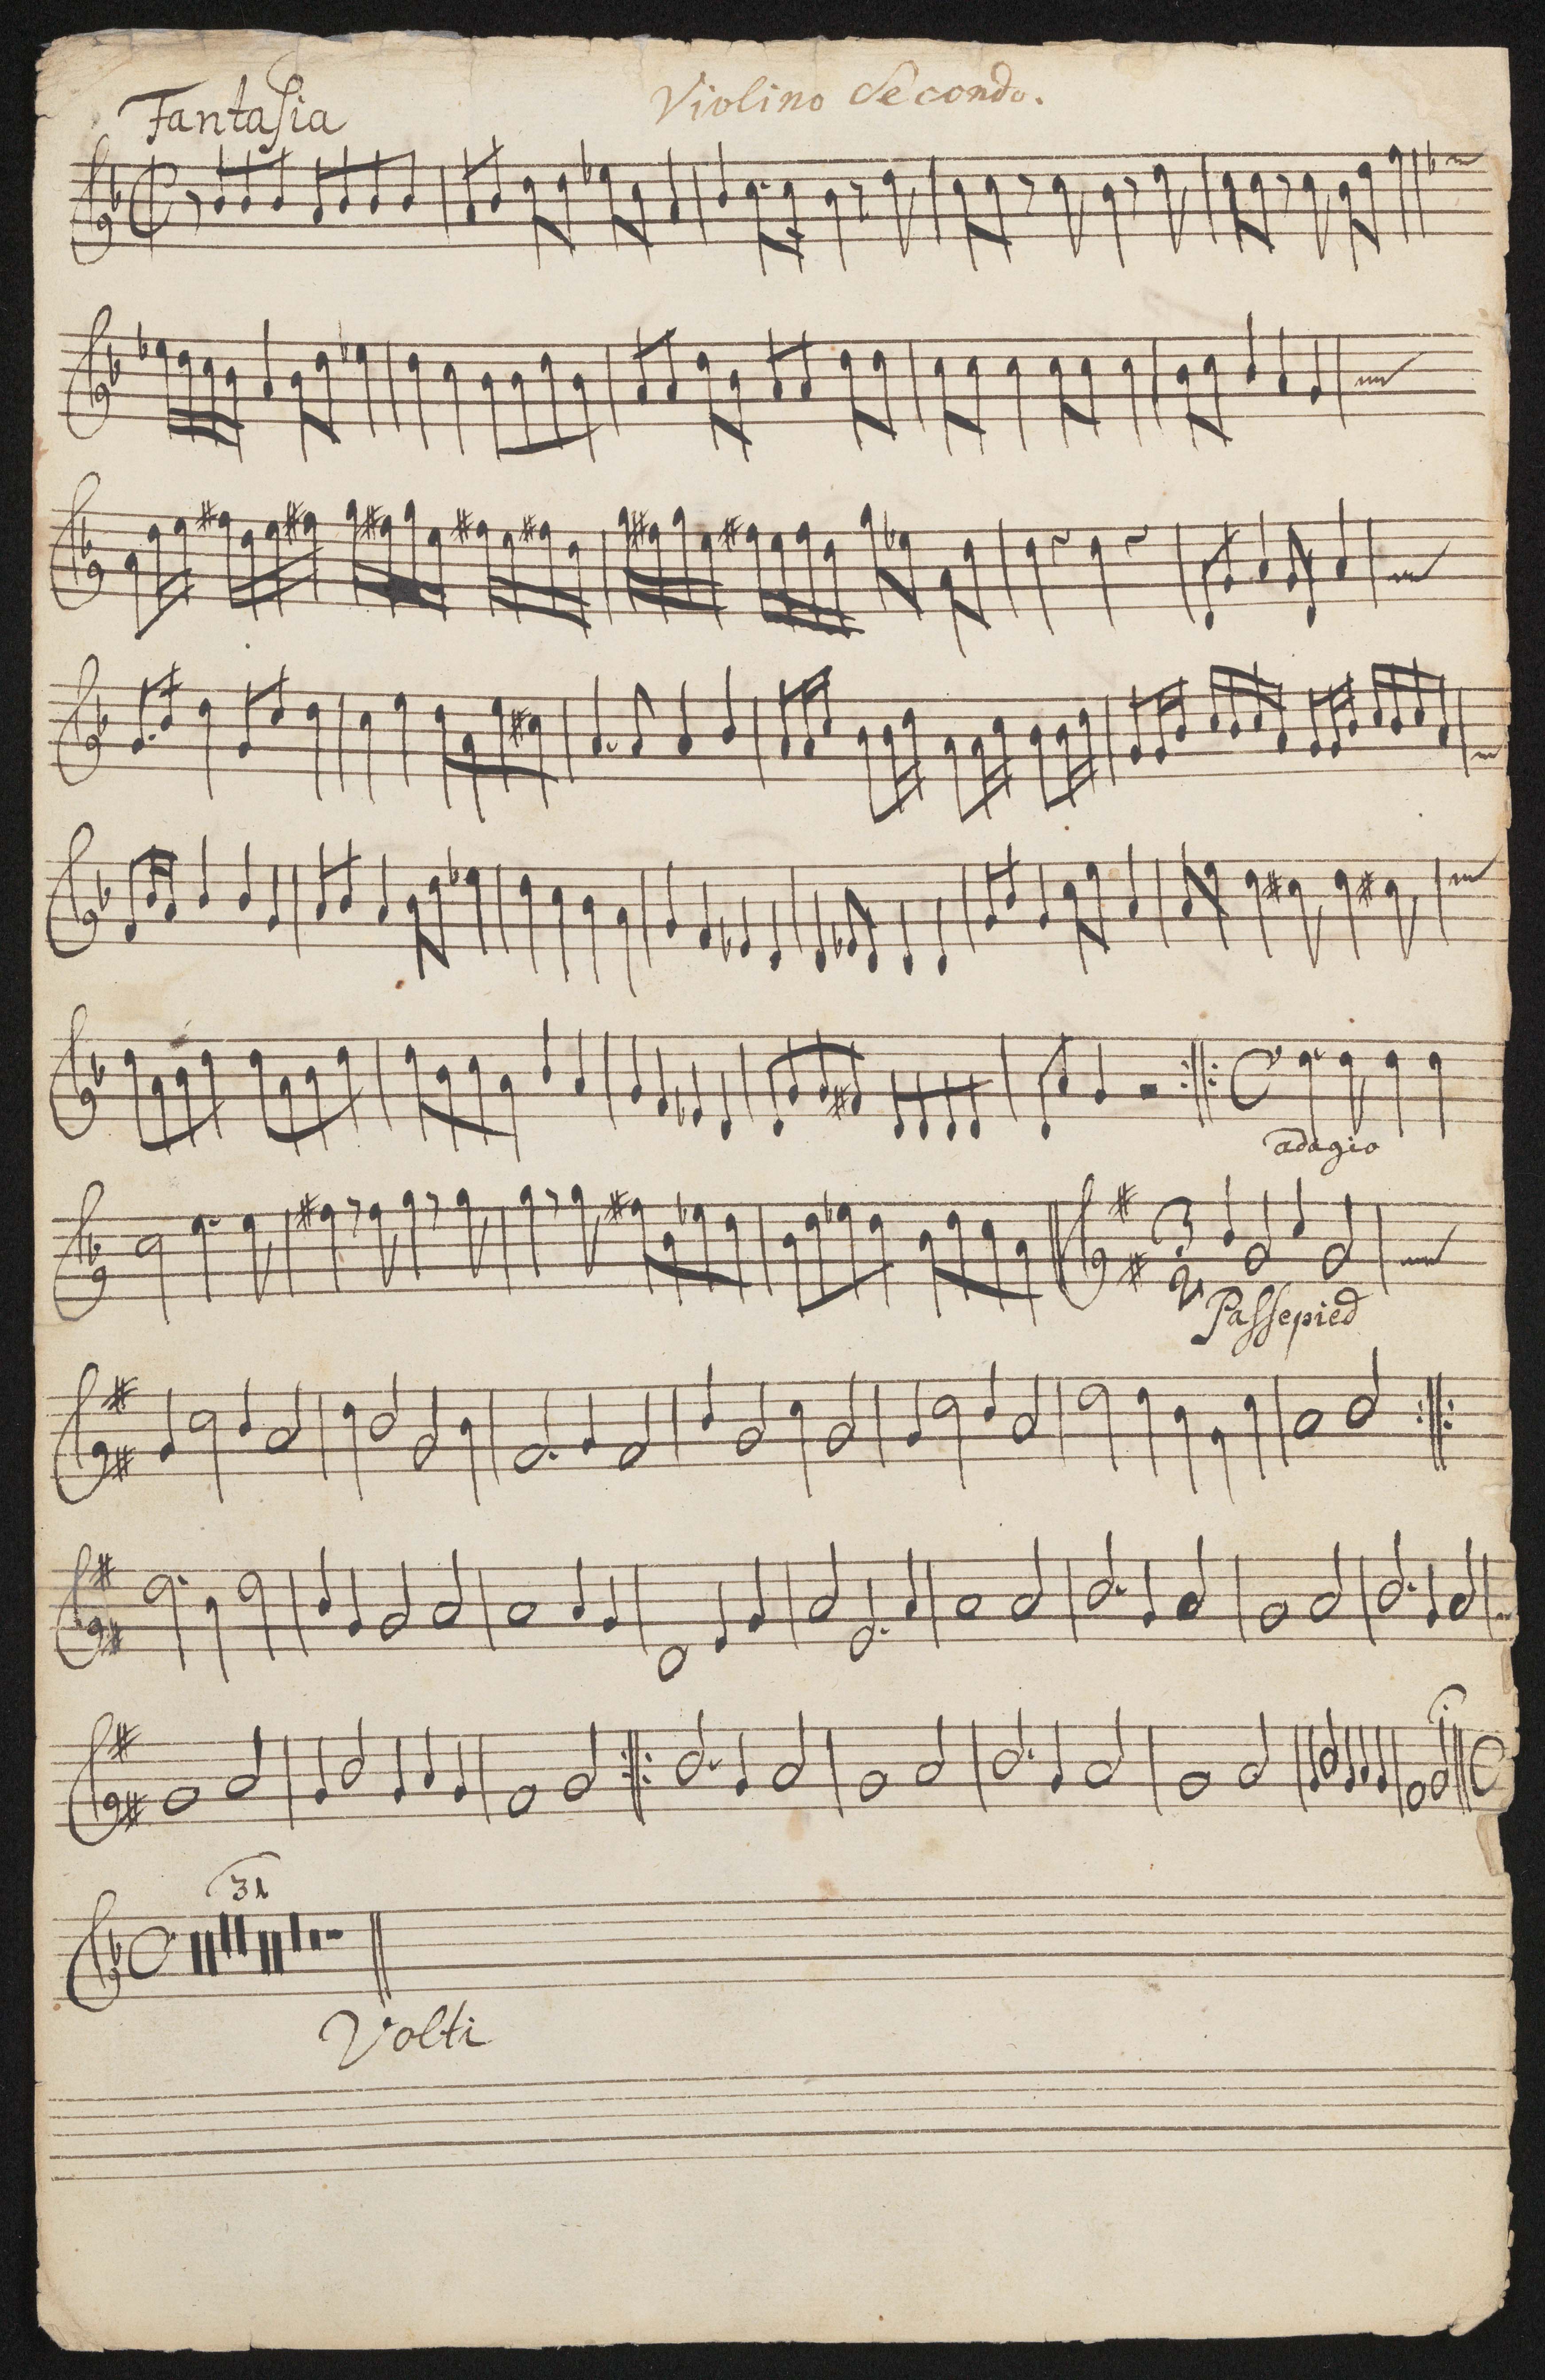 Fantasia
Violino Secondo.
adagio
3
2
Passepied
31
Volti